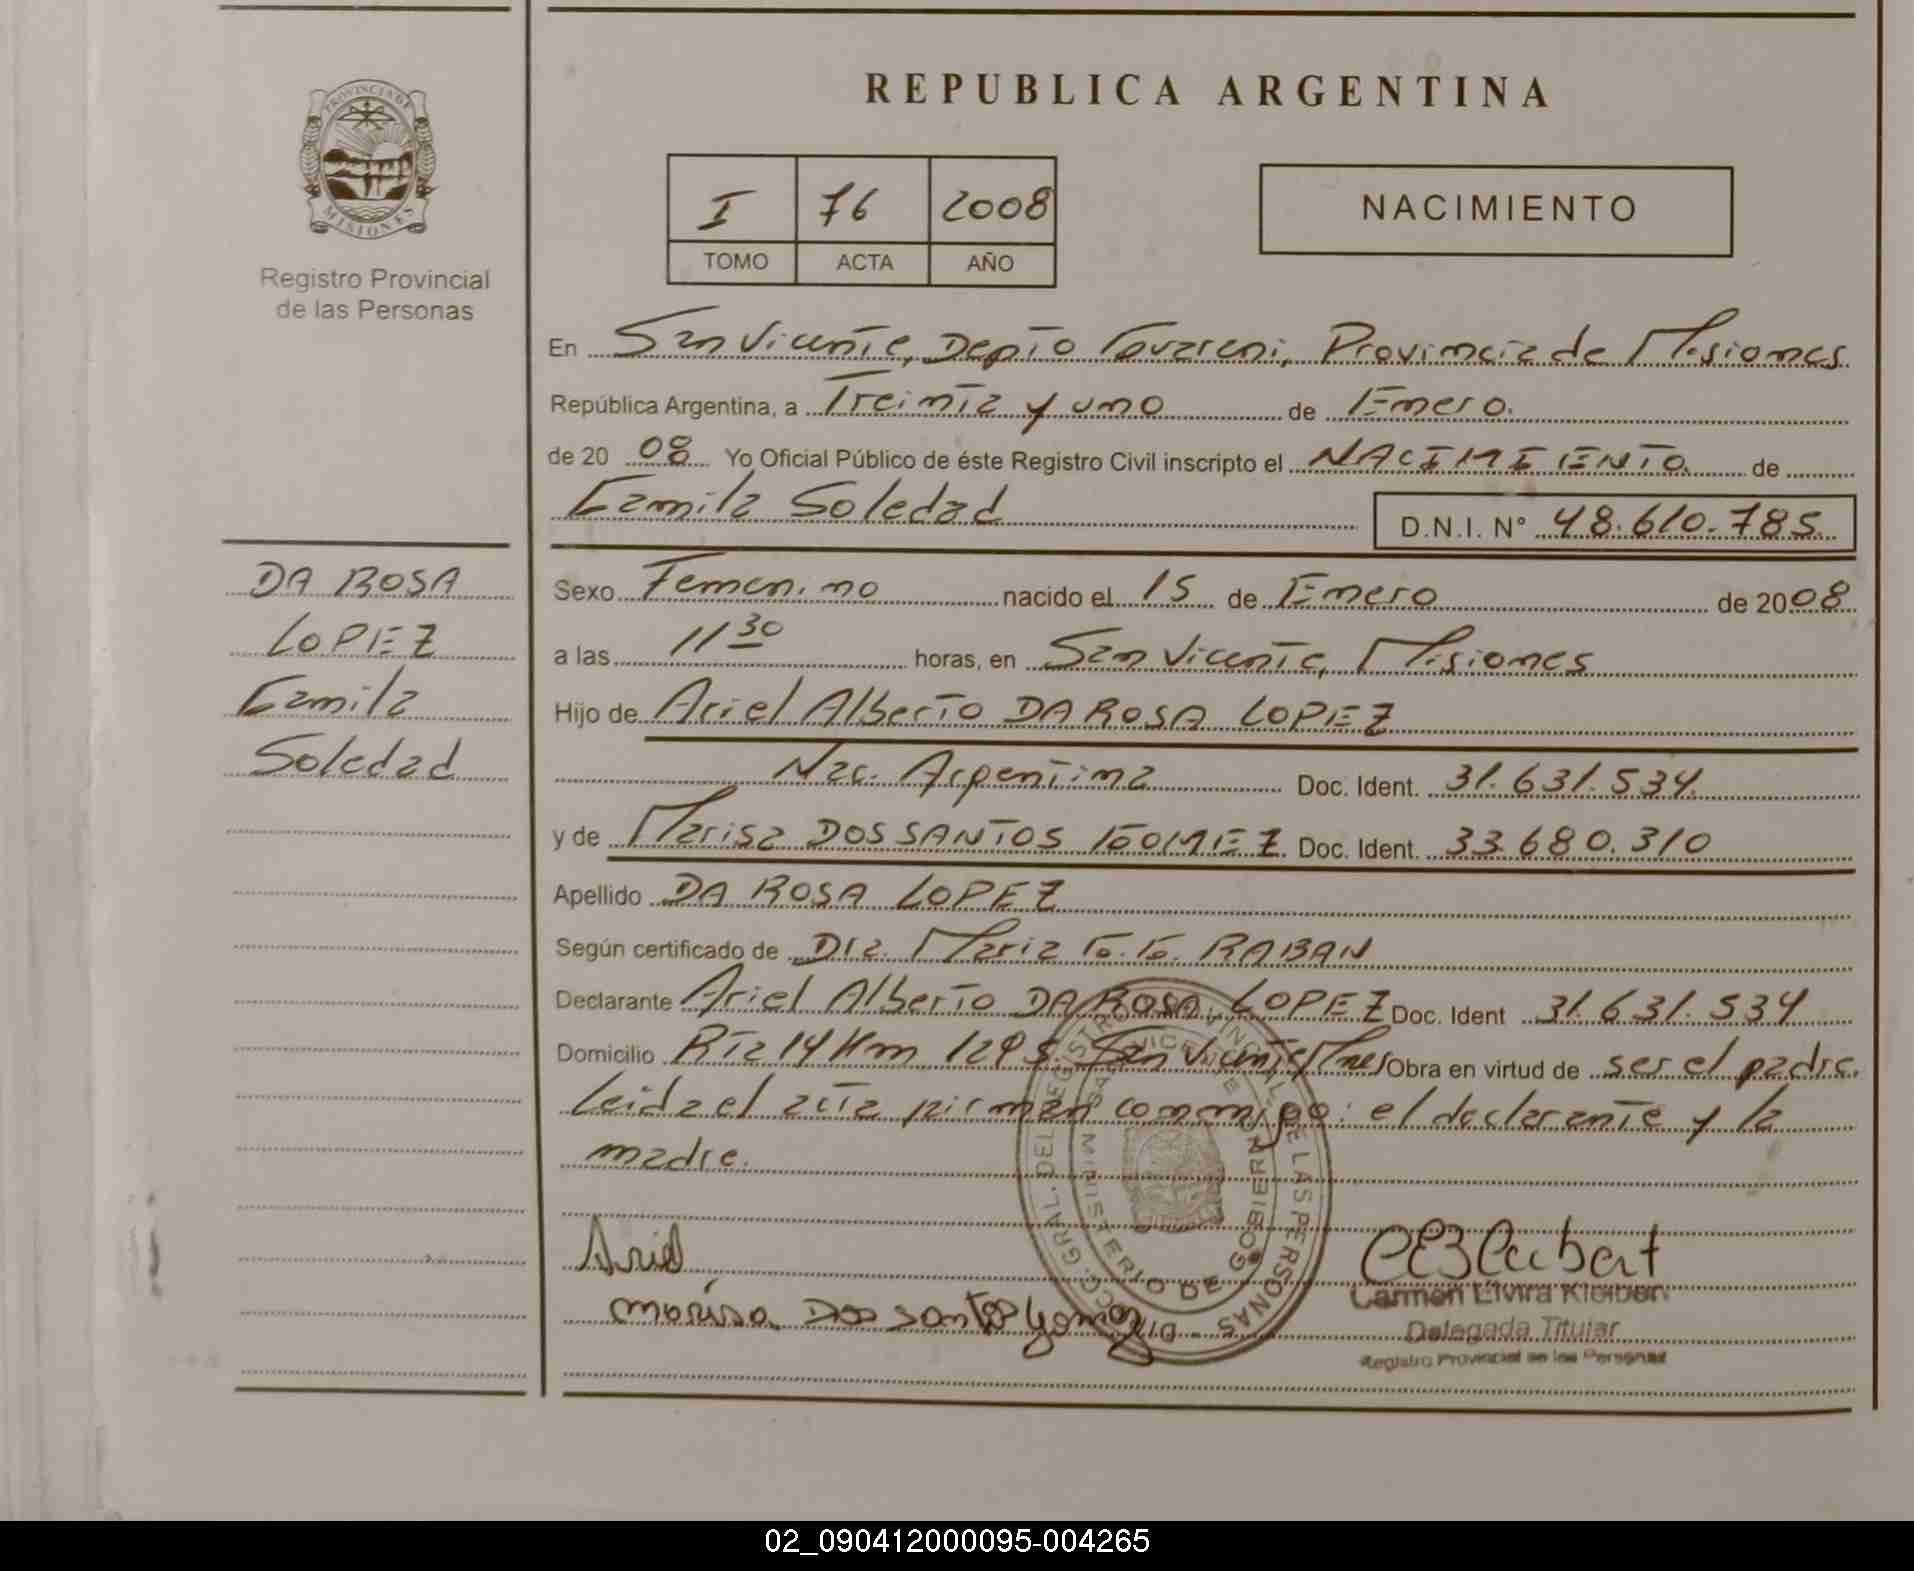 REPUBLICA ARGENTINA
PROVINCIA DE
MISIONES
Registro Provincial
de las Personas
I 76 2008
TOMO ACTA AÑO
NACIMIENTO
En San Vicente, Depto Guarani, Provincia de Misiones
República Argentina, a Treinta y uno de Enero.
de 20 08 Yo Oficial Público de éste Registro Civil inscripto el NACIMIENTO de
Camila Soledad D.N.I. N° 48.610.785.
DA ROSA
LOPEZ
Camila
Soledad
Sexo Femenino nacido el 15 de Enero de 2008
a las 11 30 horas, en San Vicente, Misiones
Hijo de Ariel Alberto DA ROSA LOPEZ
Nac. Argentina Doc. Ident. 31.631.534.
y de Marisa DOS SANTOS GOMEZ Doc. Ident. 33.680.310
Apellido DA ROSA LOPEZ
Según certificado de Dra. Maria G. G. RABAN
Declarante Ariel Alberto DA ROSA LOPEZ Doc. Ident 31.631.534
Domicilio Rta 14 Km 1295. San Vicente Mnes Obra en virtud de ser el padre.
Leida el acta firman conmigo: el declarante y la
madre.
DIRECC. GRAL. DEL REGISTRO PROVINCIAL DE LAS PERSONAS
SAN VICENTE
MINISTERIO DE GOBIERNO
Ariel
Marisa Dos santos gomez
Carmen Elvira Kleiber
Delegada Titular
Registro Provincial de las Personas
02_090412000095-004265